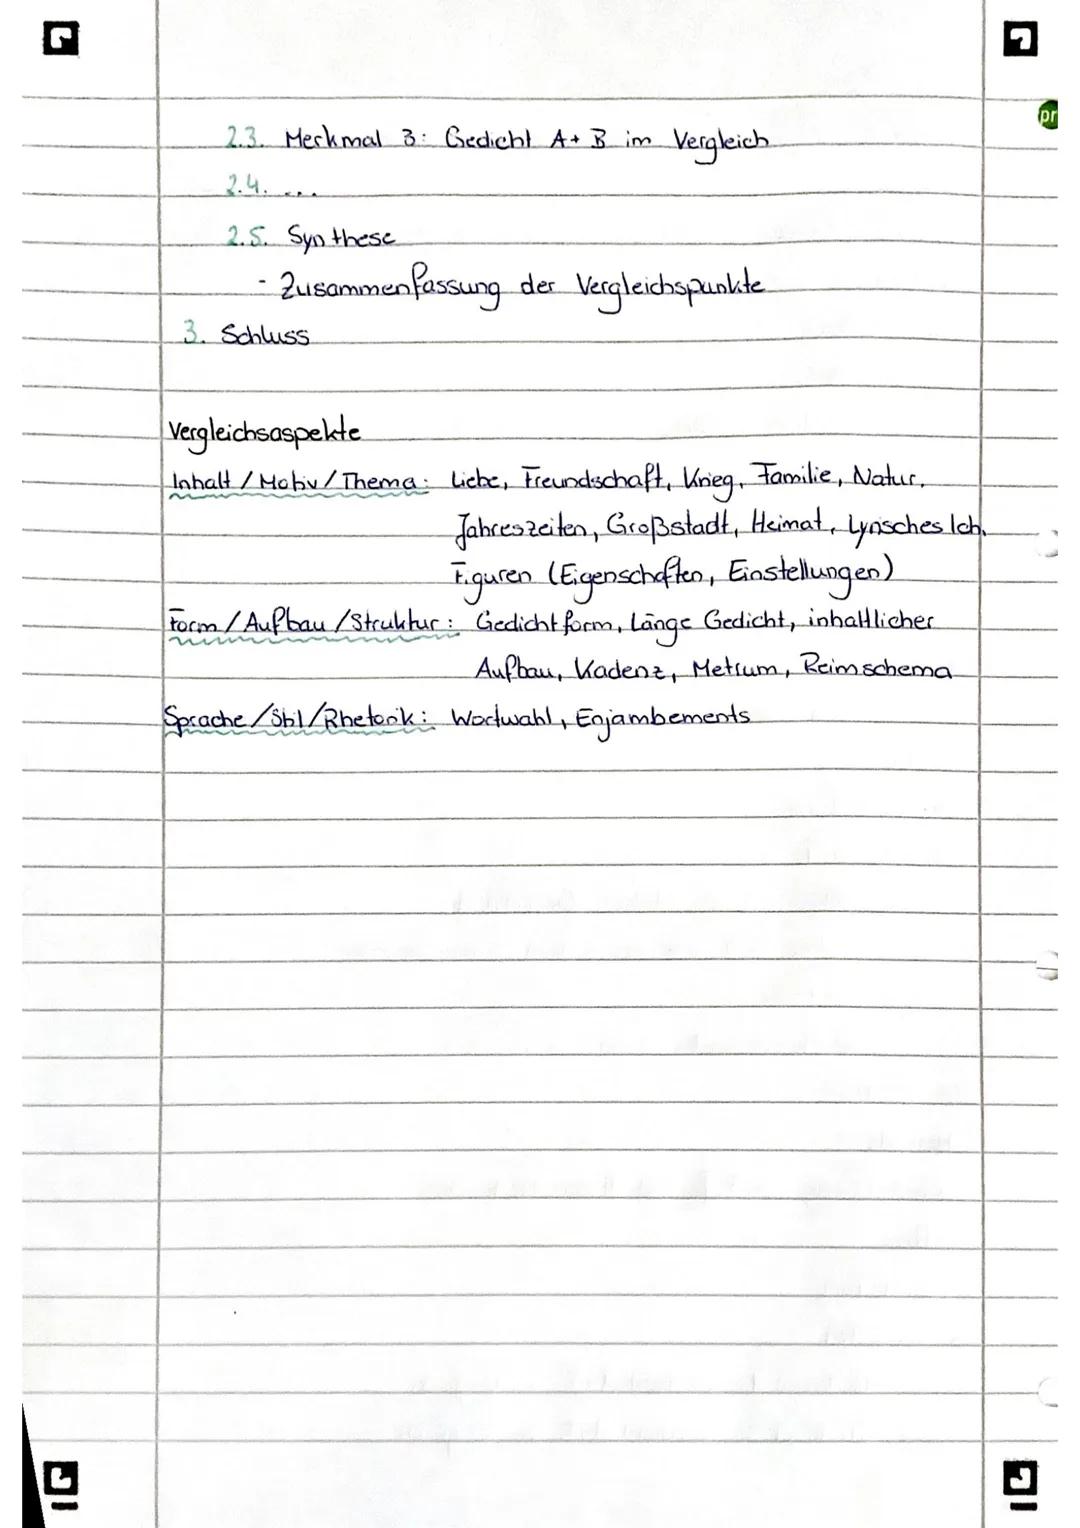 pr
2.3. Merkmal 3: Gedicht A+B im Vergleich
2.4. ...
2.5. Synthese
- Zusammenfassung der Vergleichspunkte
3. Schluss
Vergleichsaspekte
Inhalt / Motiv / Thema: Liebe, Freundschaft, Krieg, Familie, Natur,
Jahreszeiten, Großstadt, Heimat, Lyrisches Ich,
Figuren (Eigenschaften, Einstellungen)
Form / Aufbau / Struktur: Gedichtform, Länge Gedicht, inhaltlicher
Aufbau, Kadenz, Metrum, Reimschema
Sprache / Stil / Rhetorik: Wortwahl, Enjambements